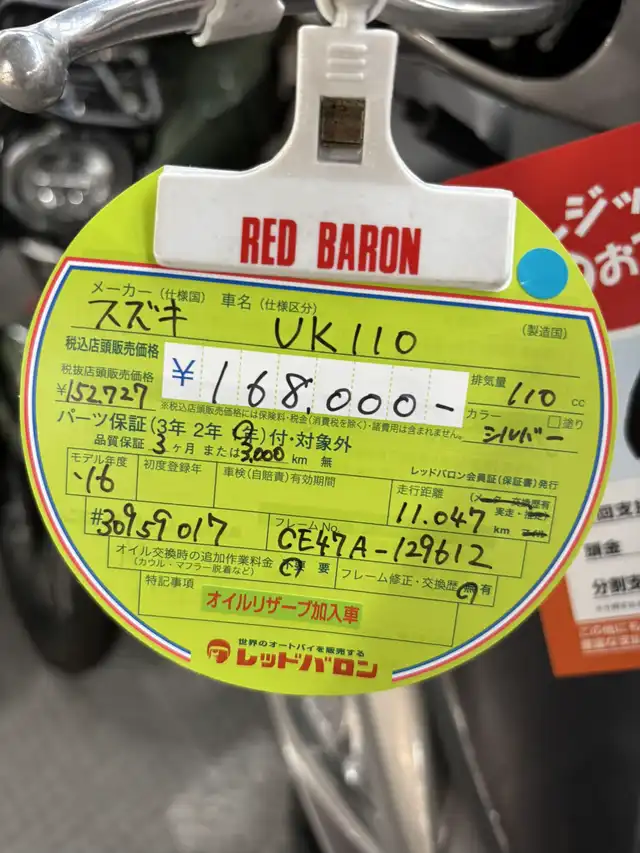 RED BARON
ジッ
のお
メーカー（仕様国） 車名（仕様区分） （製造国）
スズキ UK110
税込店頭販売価格 ¥168,000-
排気量 110 cc
税抜店頭販売価格
¥152,727
※税込店頭販売価格には保険料・税金(消費税を除く)・諸費用は含まれません。
カラー □塗り
シルバー
パーツ保証(3年 2年 1年)付・対象外
品質保証 3ヶ月 または 3,000km 無
レッドバロン会員証(保証書)発行
モデル年度 初度登録年 車検(自賠責)有効期間 走行距離 (メーター交換歴有
'16 11.047 km 実走・推定)
#30959017 フレームNo. CE47A-129612
オイル交換時の追加作業料金 不要 要
(カウル・マフラー脱着など)
フレーム修正・交換歴 無 有
特記事項
オイルリザーブ加入車
世界のオートバイを販売する
レッドバロン
回支
頭金
分割支